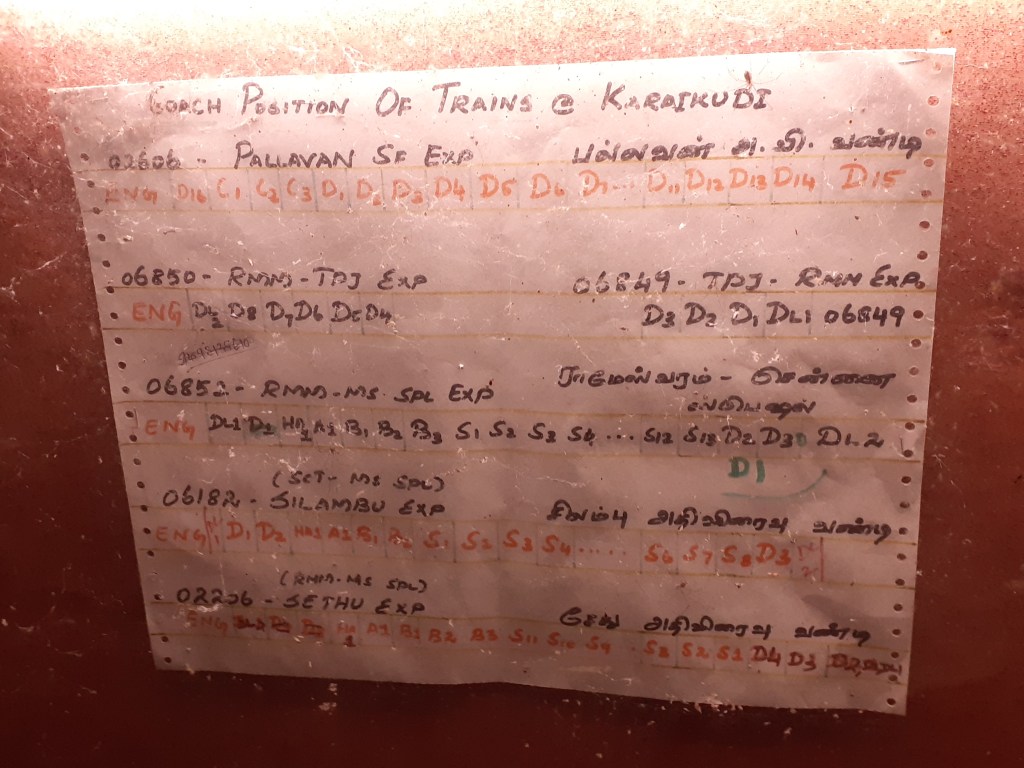 COACH POSITION OF TRAINS @ KARAIKUDI
02606 - PALLAVAN SF EXP பல்லவன் அ.வி. வண்டி
ENG D16 C1 C2 C3 D1 D2 D3 D4 D5 D6 D7... D11 D12 D13 D14 D15
06850 - RMM - TPJ EXP 06849 - TPJ - RMM EXP.
ENG D8 D7 D6 D5 D4 D3 D2 D1 DL1 06849
06852 - RMM - MS SPL EXP ராமேஸ்வரம் - சென்னை
ஸ்பெஷல்
ENG DL1 HA1 A1 B1 B2 B3 S1 S2 S3 S4 ... S12 S13 D2 D3 DL2
D1
(SCT - MS SPL)
06182 - SILAMBU EXP சிலம்பு அதிவிரைவு வண்டி
ENG D1 D2 HA1 A1 B1 B2 S1 S2 S3 S4 ..... S6 S7 S8 D3
(RMM - MS SPL)
02206 - SETHU EXP சேது அதிவிரைவு வண்டி
ENG HA1 A1 B1 B2 B3 S11 S10 S9 S3 S2 S1 D4 D3